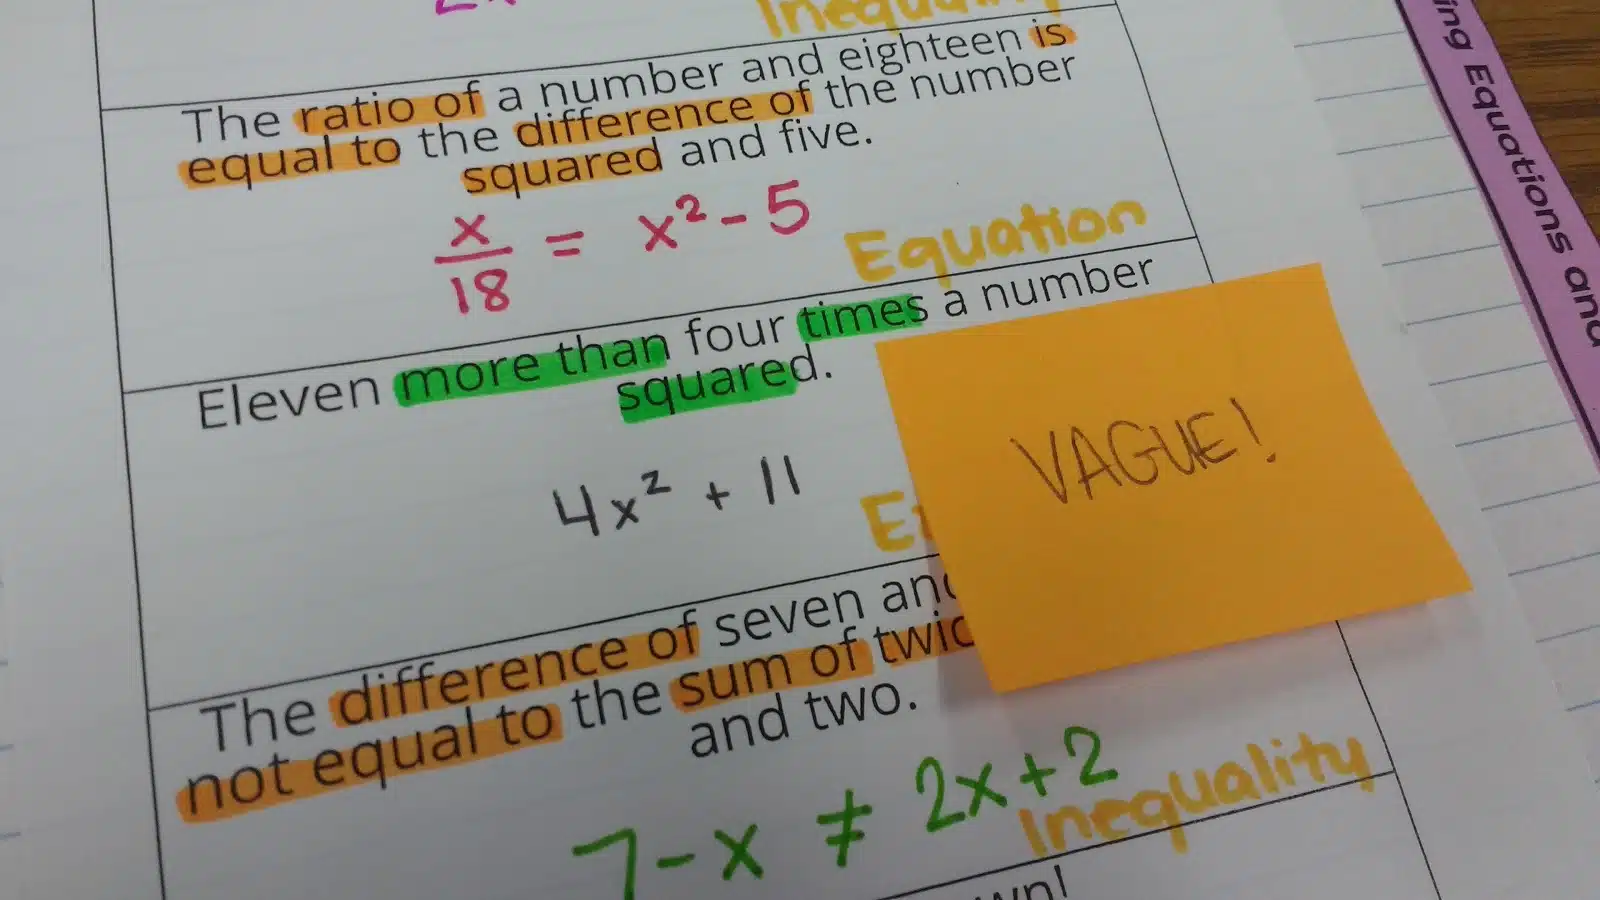 Inequality
The ratio of a number and eighteen is
equal to the difference of the number
squared and five.
x/18 = x² - 5
Equation
Eleven more than four times a number
squared.
4x² + 11
VAGUE!
The difference of seven and
not equal to the sum of
and two.
7 - x ≠ 2x + 2
Inequality
ing Equations and